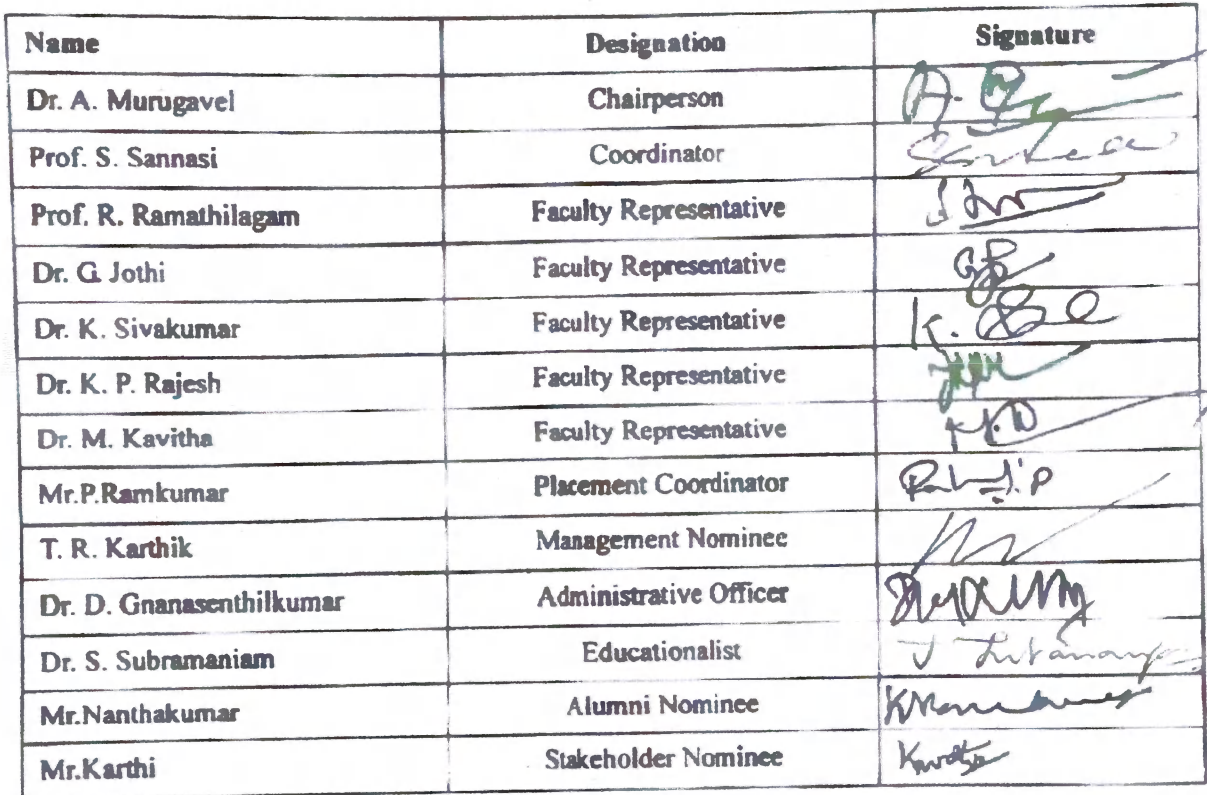 Name Designation Signature
Dr. A. Murugavel Chairperson
Prof. S. Sannasi Coordinator
Prof. R. Ramathilagam Faculty Representative
Dr. G. Jothi Faculty Representative
Dr. K. Sivakumar Faculty Representative K.
Dr. K. P. Rajesh Faculty Representative
Dr. M. Kavitha Faculty Representative
Mr.P.Ramkumar Placement Coordinator
T. R. Karthik Management Nominee
Dr. D. Gnanasenthilkumar Administrative Officer
Dr. S. Subramaniam Educationalist
Mr.Nanthakumar Alumni Nominee
Mr.Karthi Stakeholder Nominee